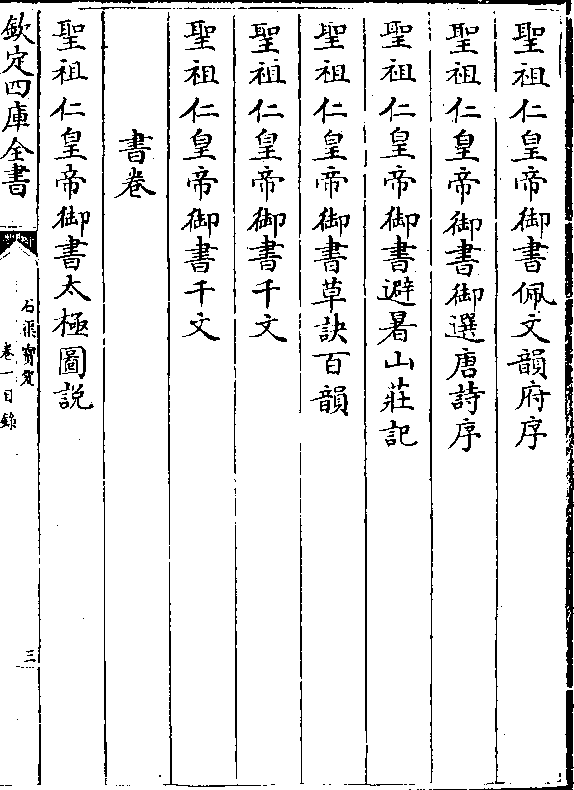 聖祖仁皇帝御書佩文韻府序
聖祖仁皇帝御書御選唐詩序
聖祖仁皇帝御書避暑山莊記
聖祖仁皇帝御書草訣百韻
聖祖仁皇帝御書千文
聖祖仁皇帝御書千文
書卷
聖祖仁皇帝御書太極圖説
欽定四庫全書
石渠寶笈
卷一目錄
三